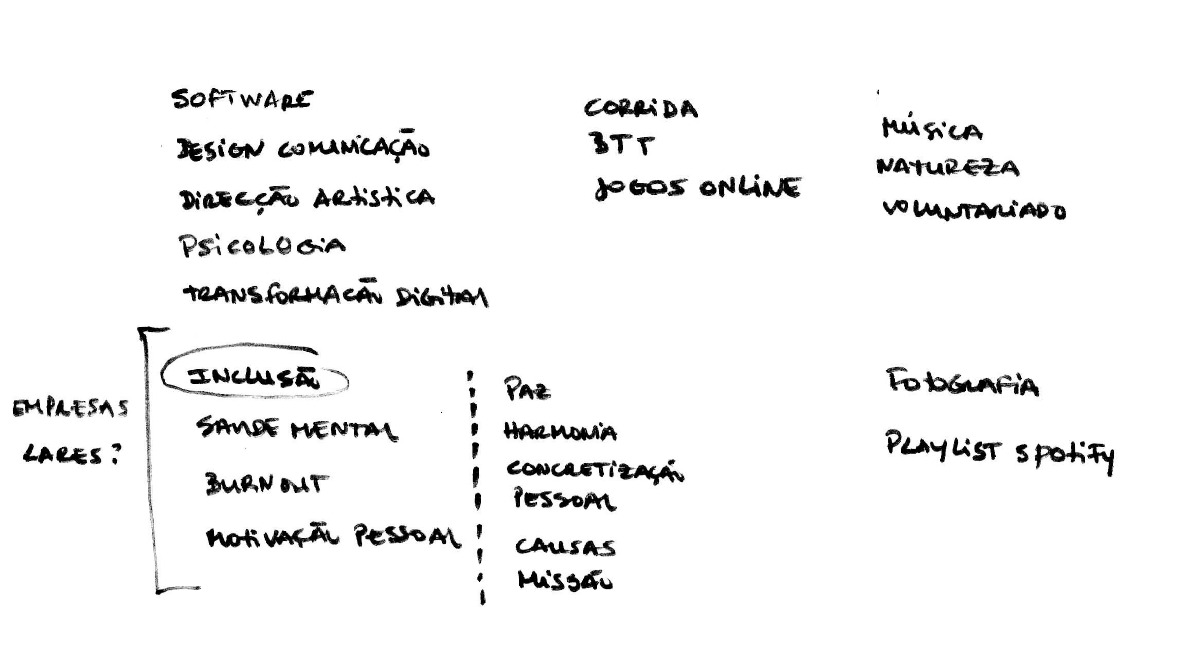 SOFTWARE
DESIGN COMUNICAÇÃO
DIRECÇÃO ARTISTICA
PSICOLOGIA
TRANSFORMAÇÃO DIGITAL
CORRIDA
BTT
JOGOS ONLINE
MÚSICA
NATUREZA
VOLUNTARIADO
EMPRESAS
LARES?
INCLUSÃO
SAUDE MENTAL
BURNOUT
MOTIVAÇÃO PESSOAL
PAZ
HARMONIA
CONCRETIZAÇÃO
PESSOAL
CAUSAS
MISSÃO
FOTOGRAFIA
PLAYLIST SPOTIFY